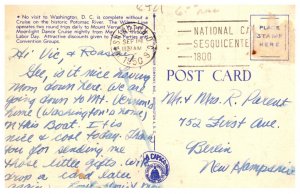 No visit to Washington, D. C. is complete without a
Cruise on the historic Potomac River. The Wilson Line
operates two round trips daily to Mount Vernon
Moonlight Dance Cruise nightly from May
Labor Day. Attractive discounts given to
Convention Groups.
Hi Vic, & Rosa
Gee, is it nice having
Mom down here. We are
going down to Mt. Vernon's
home (Washington's home)
in this Boat. It is
nice & cool today. Thank
you for sending me
those little gifts. Will
drop a card later
again
WASHINGTON
SEP
11 30 AM
1950
NATIONAL CA
SESQUICENTE
1800
PLACE
STAMP
HERE
POST CARD
Mr. & Mrs. R. Parent
752 First Ave.
Berlin
New Hampshire
CAPITOL